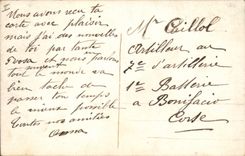 Nous avons reçu ta
carte avec plaisir,
mais j'ai des nouvelles
de toi par tante
Rosa et nous parlons
souvent
tout le monde va
bien tache de
passer ton temps
le mieux possible
Toutes nos amitiés
Mr Caillol
Artilleur au
7e d'artillerie
1re Batterie
à Bonifacio
Corse